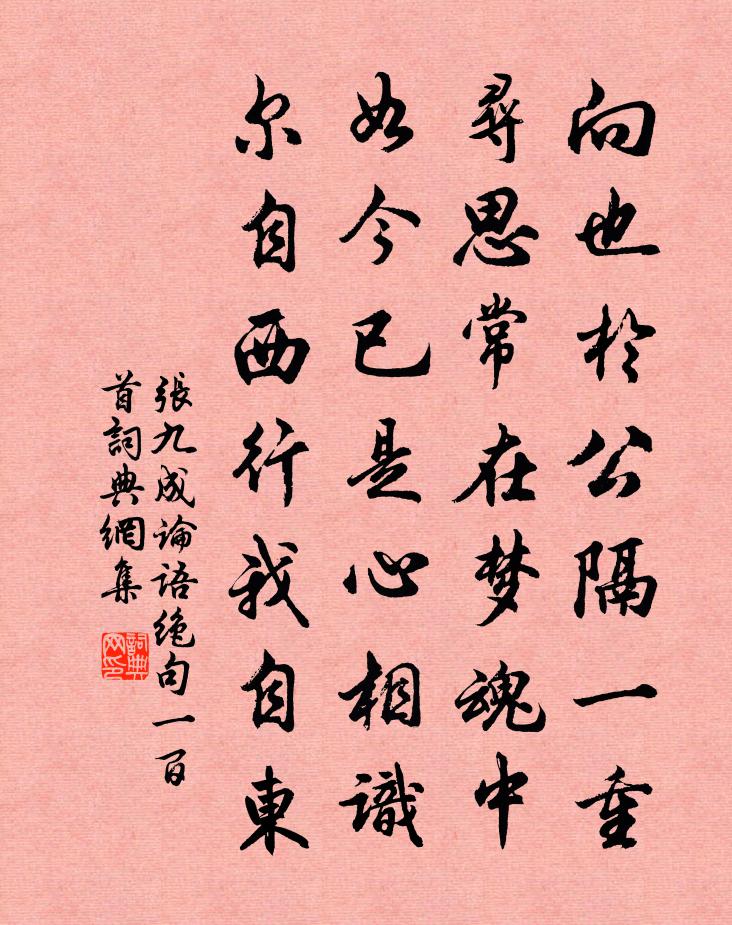 向也於公隔一重
尋思常在梦魂中
如今已是心相識
尔自西行我自東
張九成論語绝句一百
首詞典網集
詞典网印